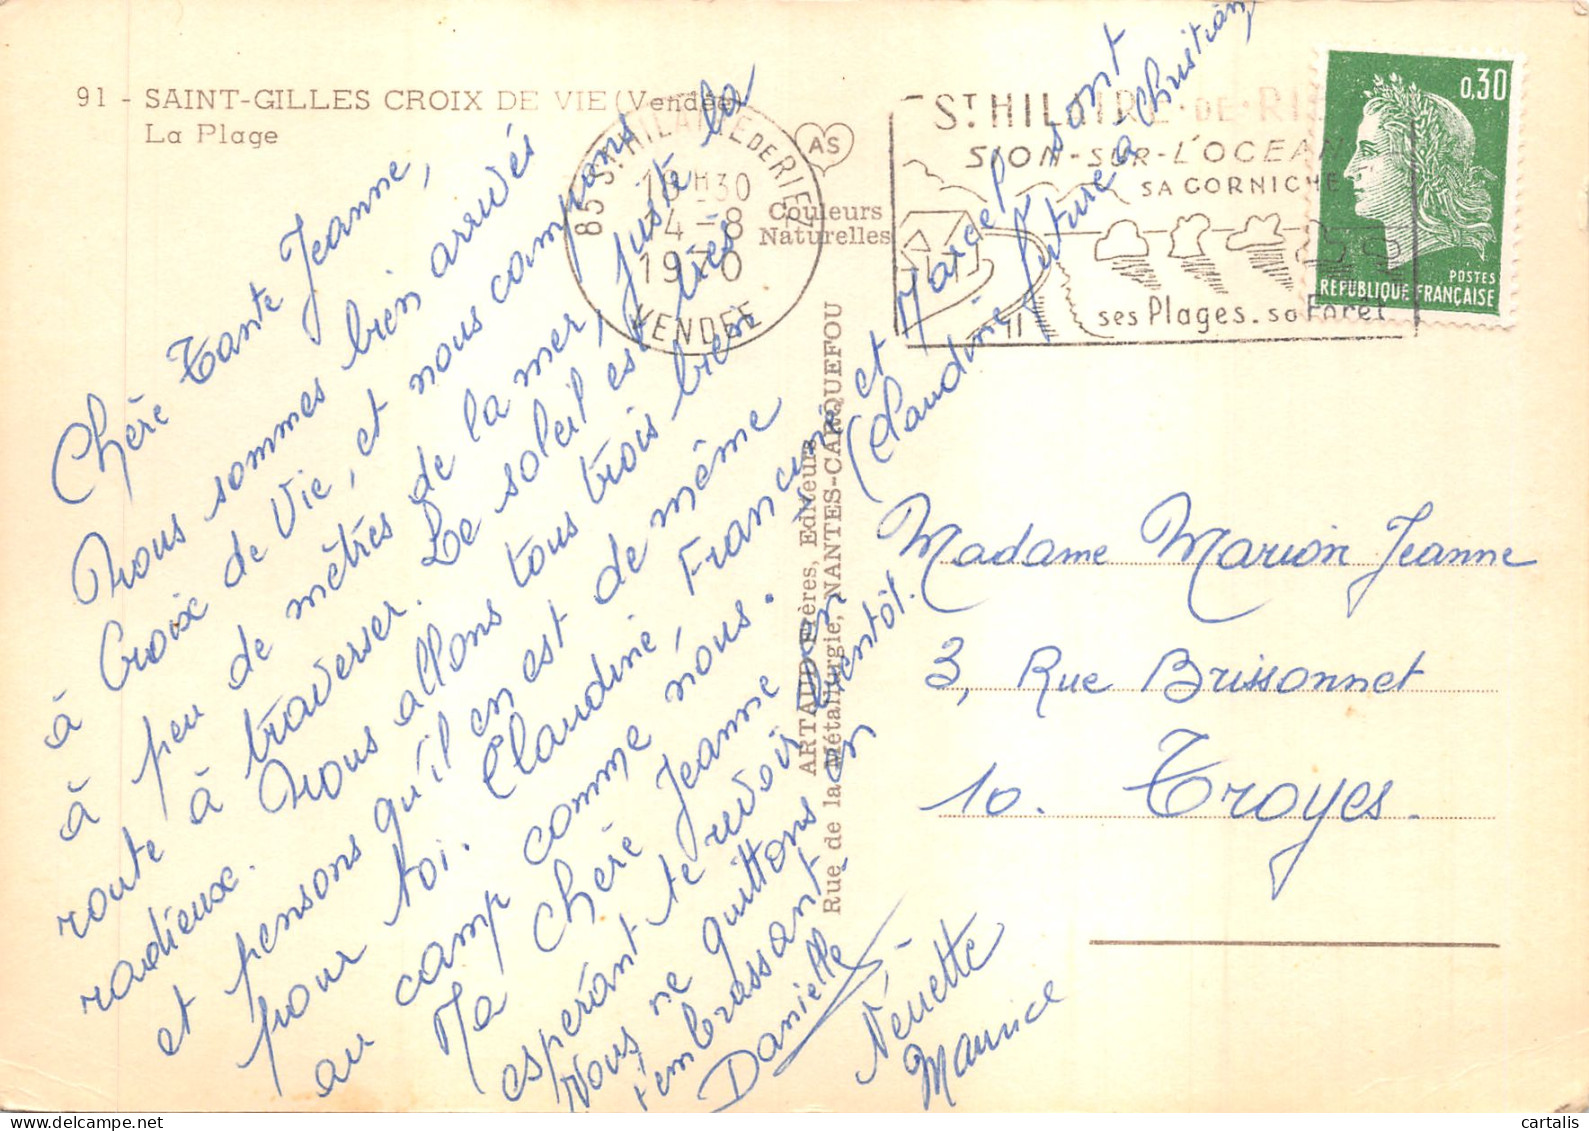 91 - SAINT-GILLES CROIX DE VIE (Vendée)
La Plage
Chère Tante Jeanne,
Nous sommes bien arrivés
à Croix de Vie, et nous campons
à peu de mètres de la mer, juste la
route à traverser. Le soleil est très
radieux. Nous allons tous trois bien
et pensons qu'il en est de même
pour toi. Claudine, Francine et Marcel sont
au camp comme nous. (Claudine future à Christian
Ma Chère Jeanne
espérant te revoir bientôt.
Nous ne quittons en
t'embrassant
Danielle
Nénette
Maurice
85 ST HILAIRE DE RIEZ
18H30
4-8
1970
VENDEE
AS
Couleurs
Naturelles
ARTAUD Frères, Editeurs
Rue de la Métallurgie, NANTES-CARQUEFOU
ST HILAIRE-DE-RIE
SION-SUR-L'OCEAN
SA CORNICHE
ses Plages. sa Forêt
0,30
POSTES
REPUBLIQUE FRANÇAISE
Madame Marion Jeanne
3, Rue Brissonnet
10. Troyes.
cartalis